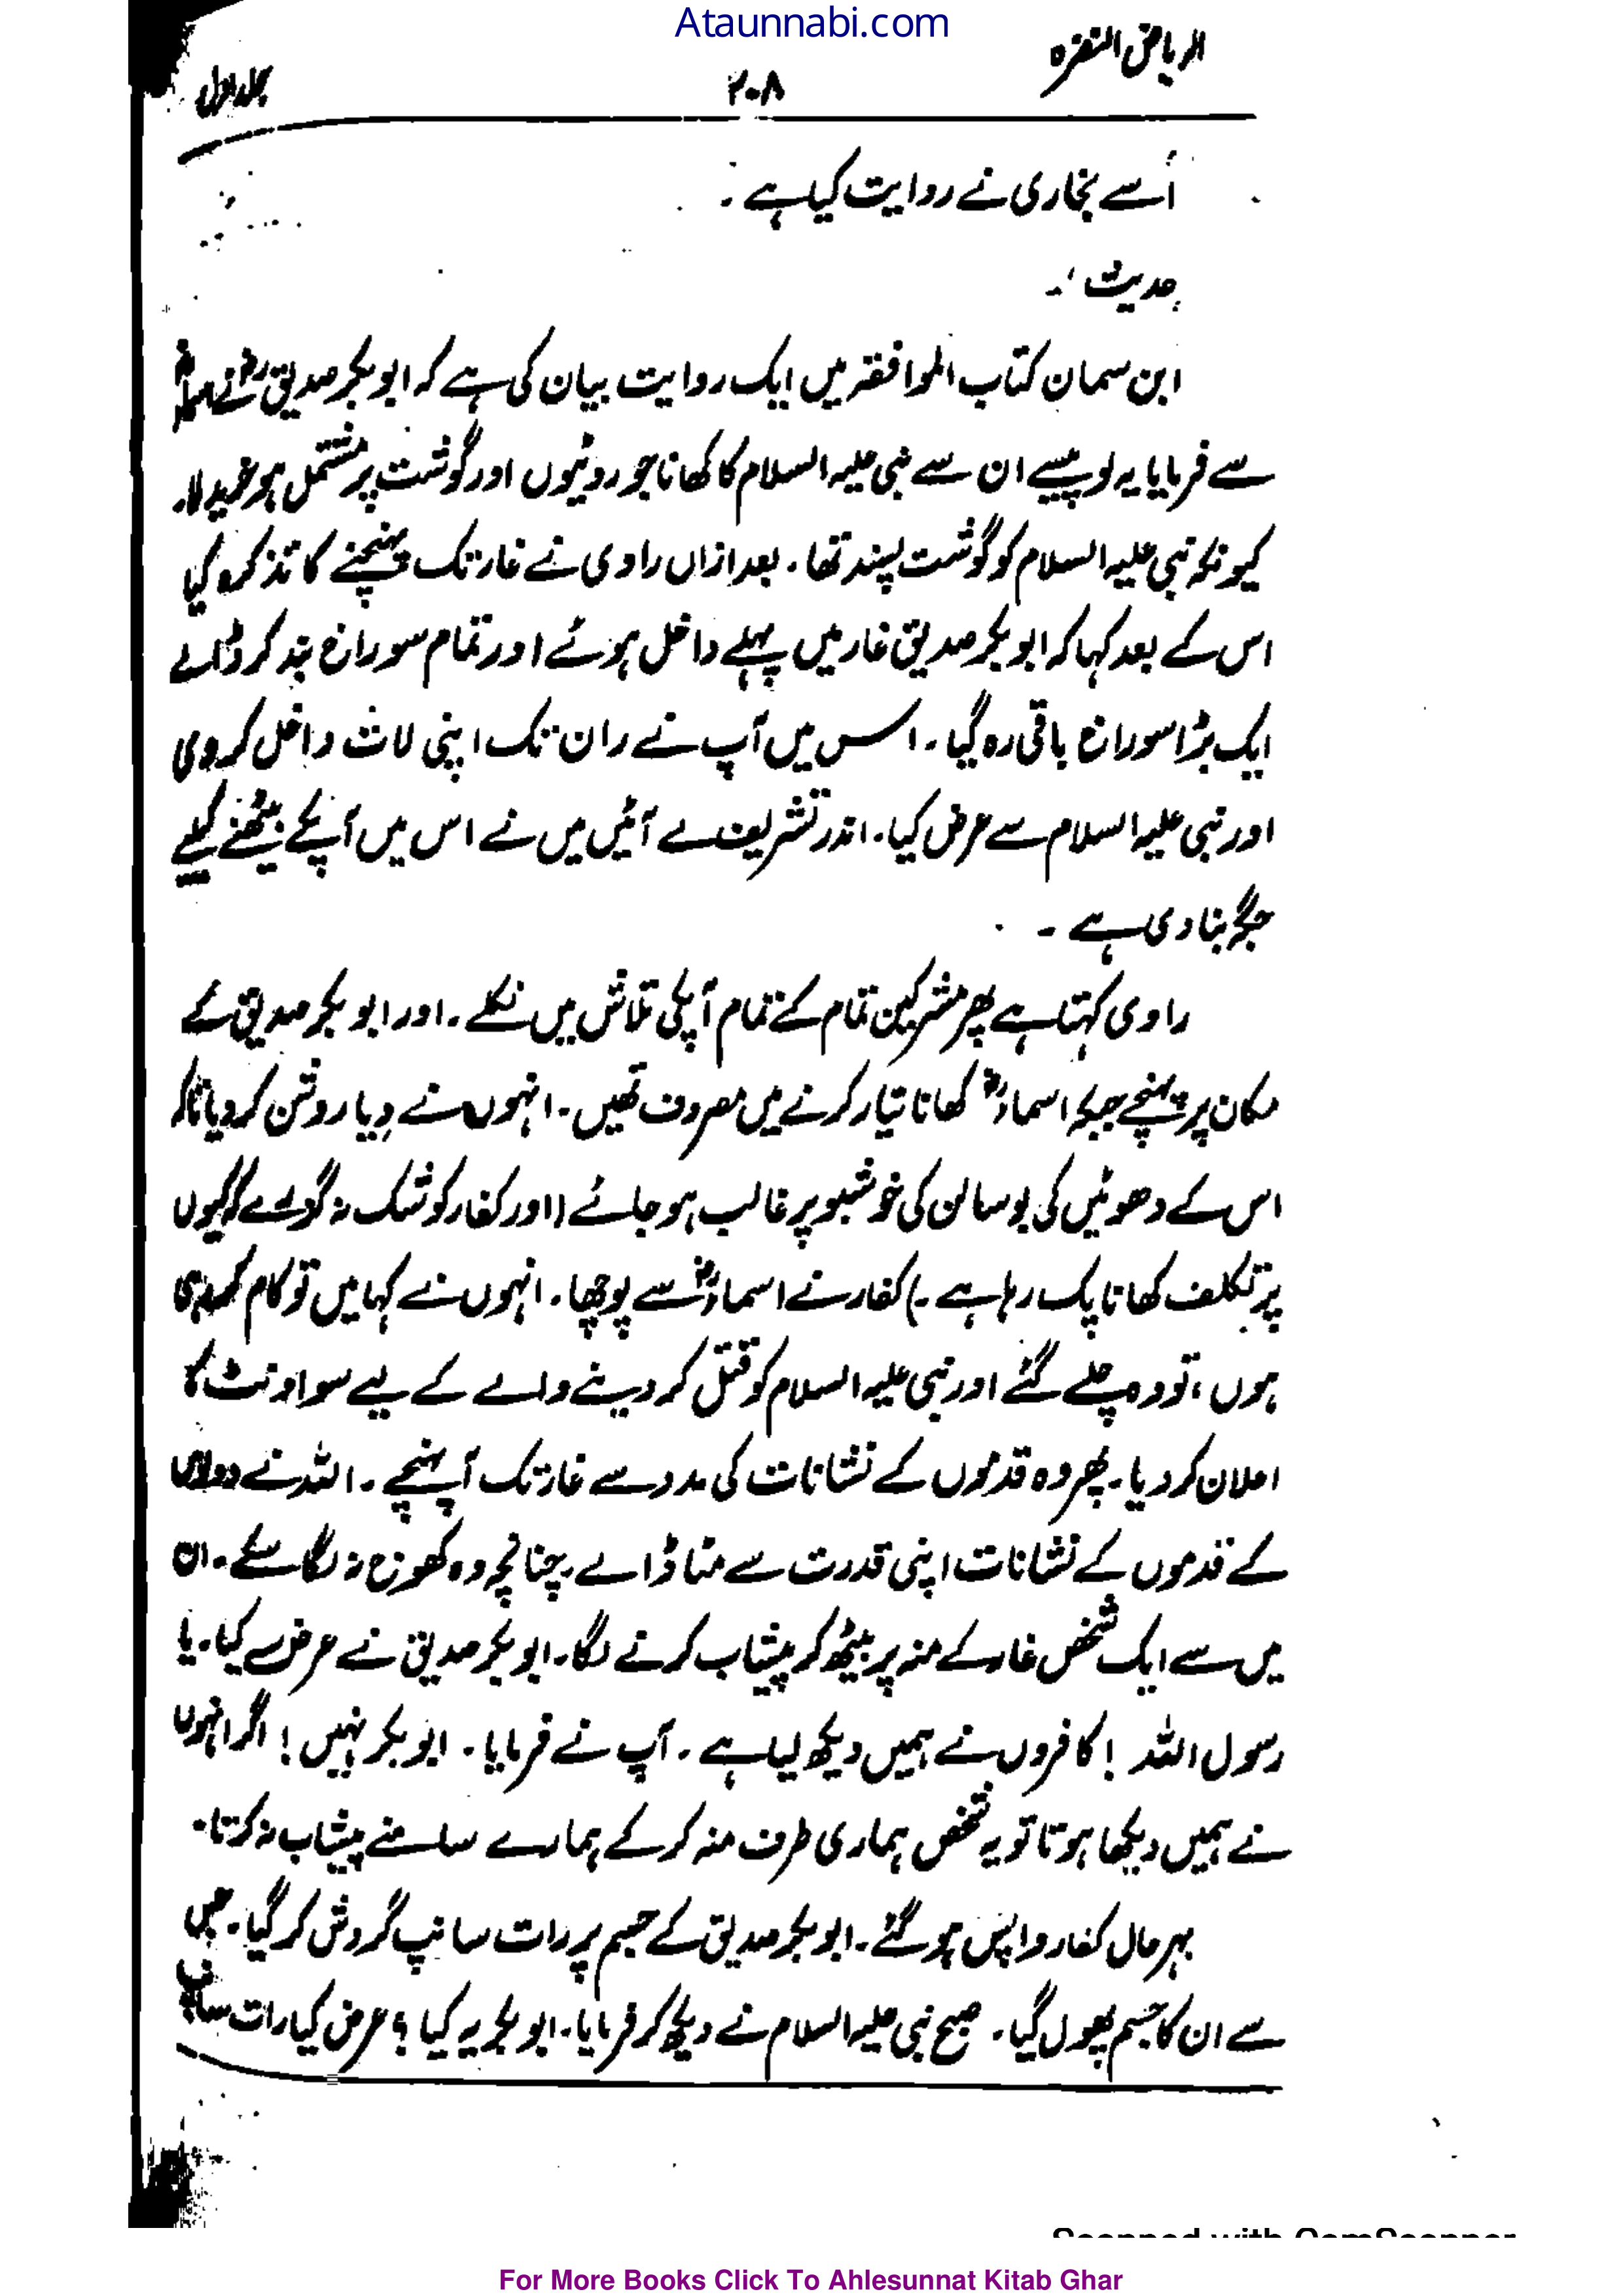 Ataunnabi.com
الریاض النضرہ
۲۰۸
جلد اول
اُسے بخاری نے روایت کیا ہے ۔
حدیث :۔
ابن سمان کتاب الموافقہ میں ایک روایت بیان کی ہے کہ ابو بکر صدیق رضؓ نے
سے فرمایا یہ لو پیسے ان سے نبی علیہ السلام کا کھانا جو روٹیوں اور گوشت پر مشتمل ہو خرید لا۔
کیونکہ نبی علیہ السلام کو گوشت پسند تھا ۔ بعد ازاں راوی نے غار تک پہنچنے کا تذکرہ کیا
اس کے بعد کہا کہ ابو بکر صدیق غار میں پہلے داخل ہوئے اور تمام سوراخ بند کر ڈالے
ایک بڑا سوراخ باقی رہ گیا ۔ اس میں آپ نے ران تک اپنی لات داخل کر دی
اور نبی علیہ السلام سے عرض کیا ۔ اندر تشریف لے آئیں میں نے اس میں آپکے بیٹھنے کیلیے
جگہ بنا دی ہے ۔
راوی کہتا ہے پھر مشرکین تمام کے تمام آپکی تلاش میں نکلے ۔ اور ابو بکر صدیق کے
مکان پر پہنچے جبکہ اسماءؓ کھانا تیار کرنے میں مصروف تھیں ۔ انہوں نے دِیا روشن کر دیا تاکہ
اس کے دھوئیں کی بو سالن کی خوشبو پر غالب ہو جائے (اور کفار کو شک نہ گزرے کہ کیوں
پر تکلف کھانا پک رہا ہے ۔) کفار نے اسماءؓ سے پوچھا ۔ انہوں نے کہا میں تو کام کر رہی
ہوں ، تو وہ چلے گئے اور نبی علیہ السلام کو قتل کر دینے والے کے لیے سو اونٹ کا
اعلان کر دیا ۔ پھر وہ قدموں کے نشانات کی مدد سے غار تک آ پہنچے ۔ اللہ نے دونوں
کے قدموں کے نشانات اپنی قدرت سے مٹا ڈالے ۔ چنانچہ وہ کھوج نہ لگا سکے ۔ ان
میں سے ایک شخص غار کے منہ پر بیٹھ کر پیشاب کرنے لگا۔ ابو بکر صدیق نے عرض کیا ۔ یا
رسول اللہ ! کافروں نے ہمیں دیکھ لیا ہے ۔ آپ نے فرمایا ۔ ابو بکر نہیں ! اگر انہوں
نے ہمیں دیکھا ہوتا تو یہ شخص ہماری طرف منہ کر کے ہمارے سامنے پیشاب نہ کرتا ۔
بہر حال کفار واپس ہو گئے ۔ ابو بکر صدیق کے جسم پر رات سانپ گردش کر گیا ۔ جس
سے ان کا جسم پھول گیا ۔ صبح نبی علیہ السلام نے دیکھ کر فرمایا ۔ ابو بکر یہ کیا ؟ عرض کیا رات سانپ
For More Books Click To Ahlesunnat Kitab Ghar